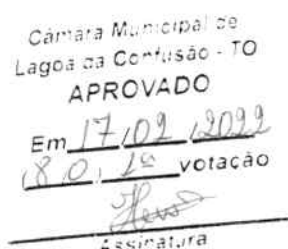 Câmara Municipal de
Lagoa da Confusão - TO
APROVADO
Em 17 / 02 / 2022
(8.0) 1ª votação
Assinatura